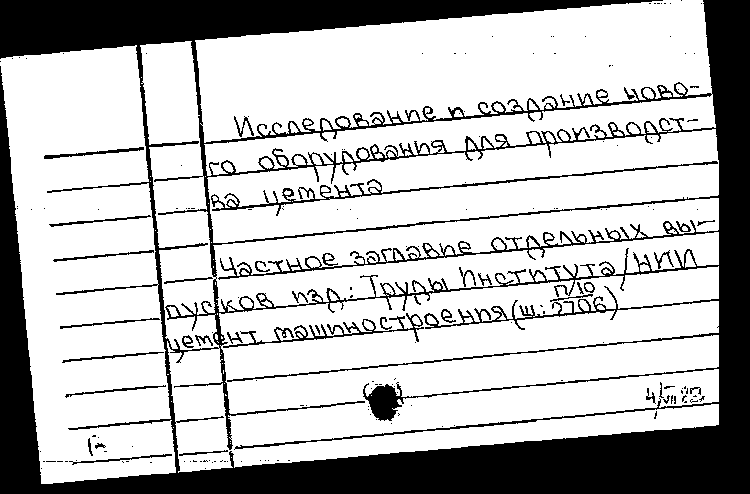 Исследование и создание ново-
го оборудования для производст-
ва цемента
Частное заглавие отдельных вы-
пусков изд.: Труды Института/НИИ
цемент. машиностроения (ш: П/10 2706)
4/VII